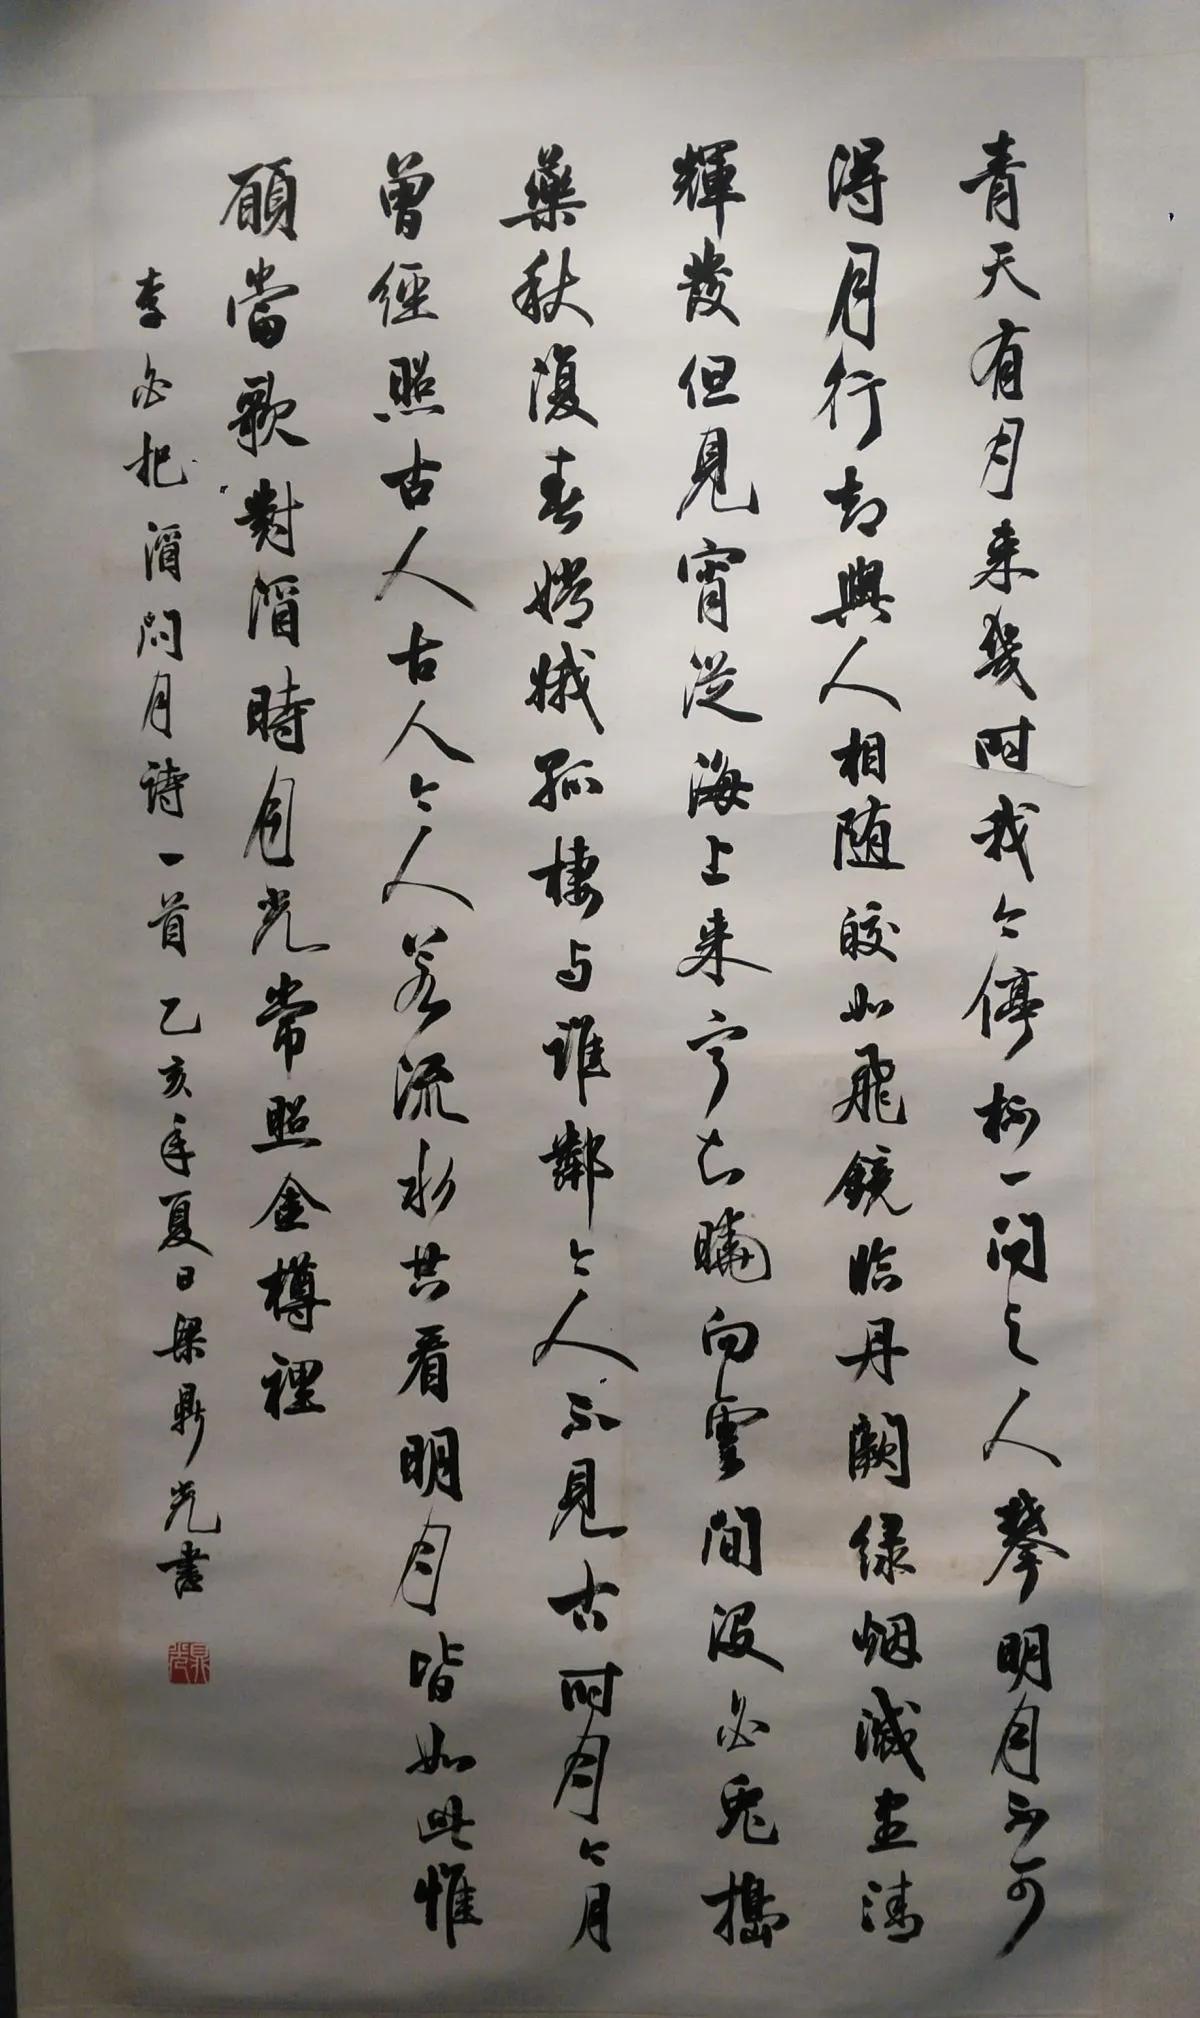 青天有月来幾时我今停杯一问之人攀明月不可
得月行却與人相随皎如飛鏡临丹闕绿烟滅盡清
輝發但見宵從海上来寧知曉向雲間没白兔搗
藥秋復春嫦娥孤棲与誰鄰今人不見古时月今月
曾經照古人古人今人若流水共看明月皆如此惟
願當歌對酒時月光常照金樽裡
李白把酒问月诗一首 乙亥年夏日梁鼎光書
鼎光